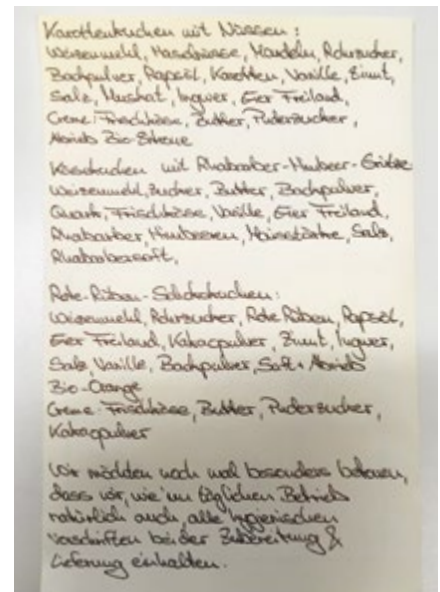 Karottenkuchen mit Nüssen:
Weizenmehl, Haselnüsse, Mandeln, Rohrzucker,
Backpulver, Rapsöl, Karotten, Vanille, Zimt,
Salz, Muskat, Ingwer, Eier Freiland,
Creme: Frischkäse, Butter, Puderzucker,
Abrieb Bio-Zitrone
Käsekuchen mit Rhabarber-Himbeer-Grütze
Weizenmehl, Zucker, Butter, Backpulver,
Quark, Frischkäse, Vanille, Eier Freiland,
Rhabarber, Himbeeren, Maisstärke, Salz,
Rhabarbersaft,
Rote-Rüben-Schokokuchen:
Weizenmehl, Rohrzucker, Rote Rüben, Rapsöl,
Eier Freiland, Kakaopulver, Zimt, Ingwer,
Salz, Vanille, Backpulver, Saft + Abrieb
Bio-Orange
Creme: Frischkäse, Butter, Puderzucker,
Kakaopulver
Wir möchten noch mal besonders betonen,
dass wir, wie im täglichen Betrieb
natürlich auch, alle hygienischen
Vorschriften bei der Zubereitung &
Lieferung einhalten.